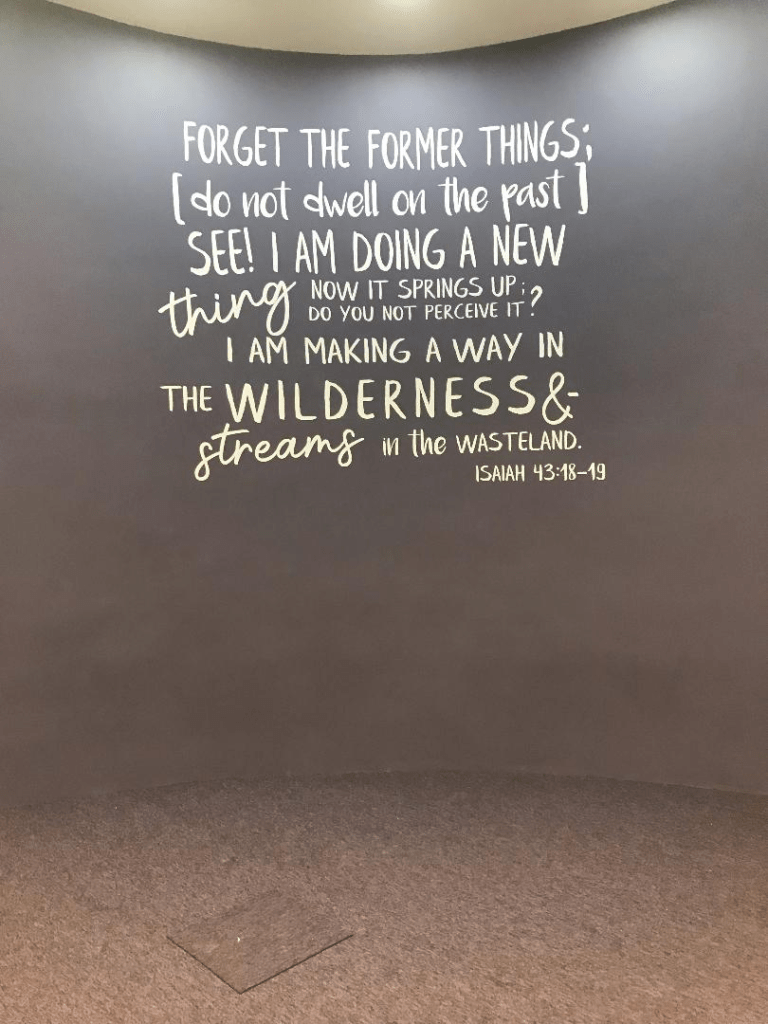 FORGET THE FORMER THINGS;
[do not dwell on the past]
SEE! I AM DOING A NEW
thing NOW IT SPRINGS UP;
DO YOU NOT PERCEIVE IT?
I AM MAKING A WAY IN
THE WILDERNESS &
streams in the WASTELAND.
ISAIAH 43:18-19